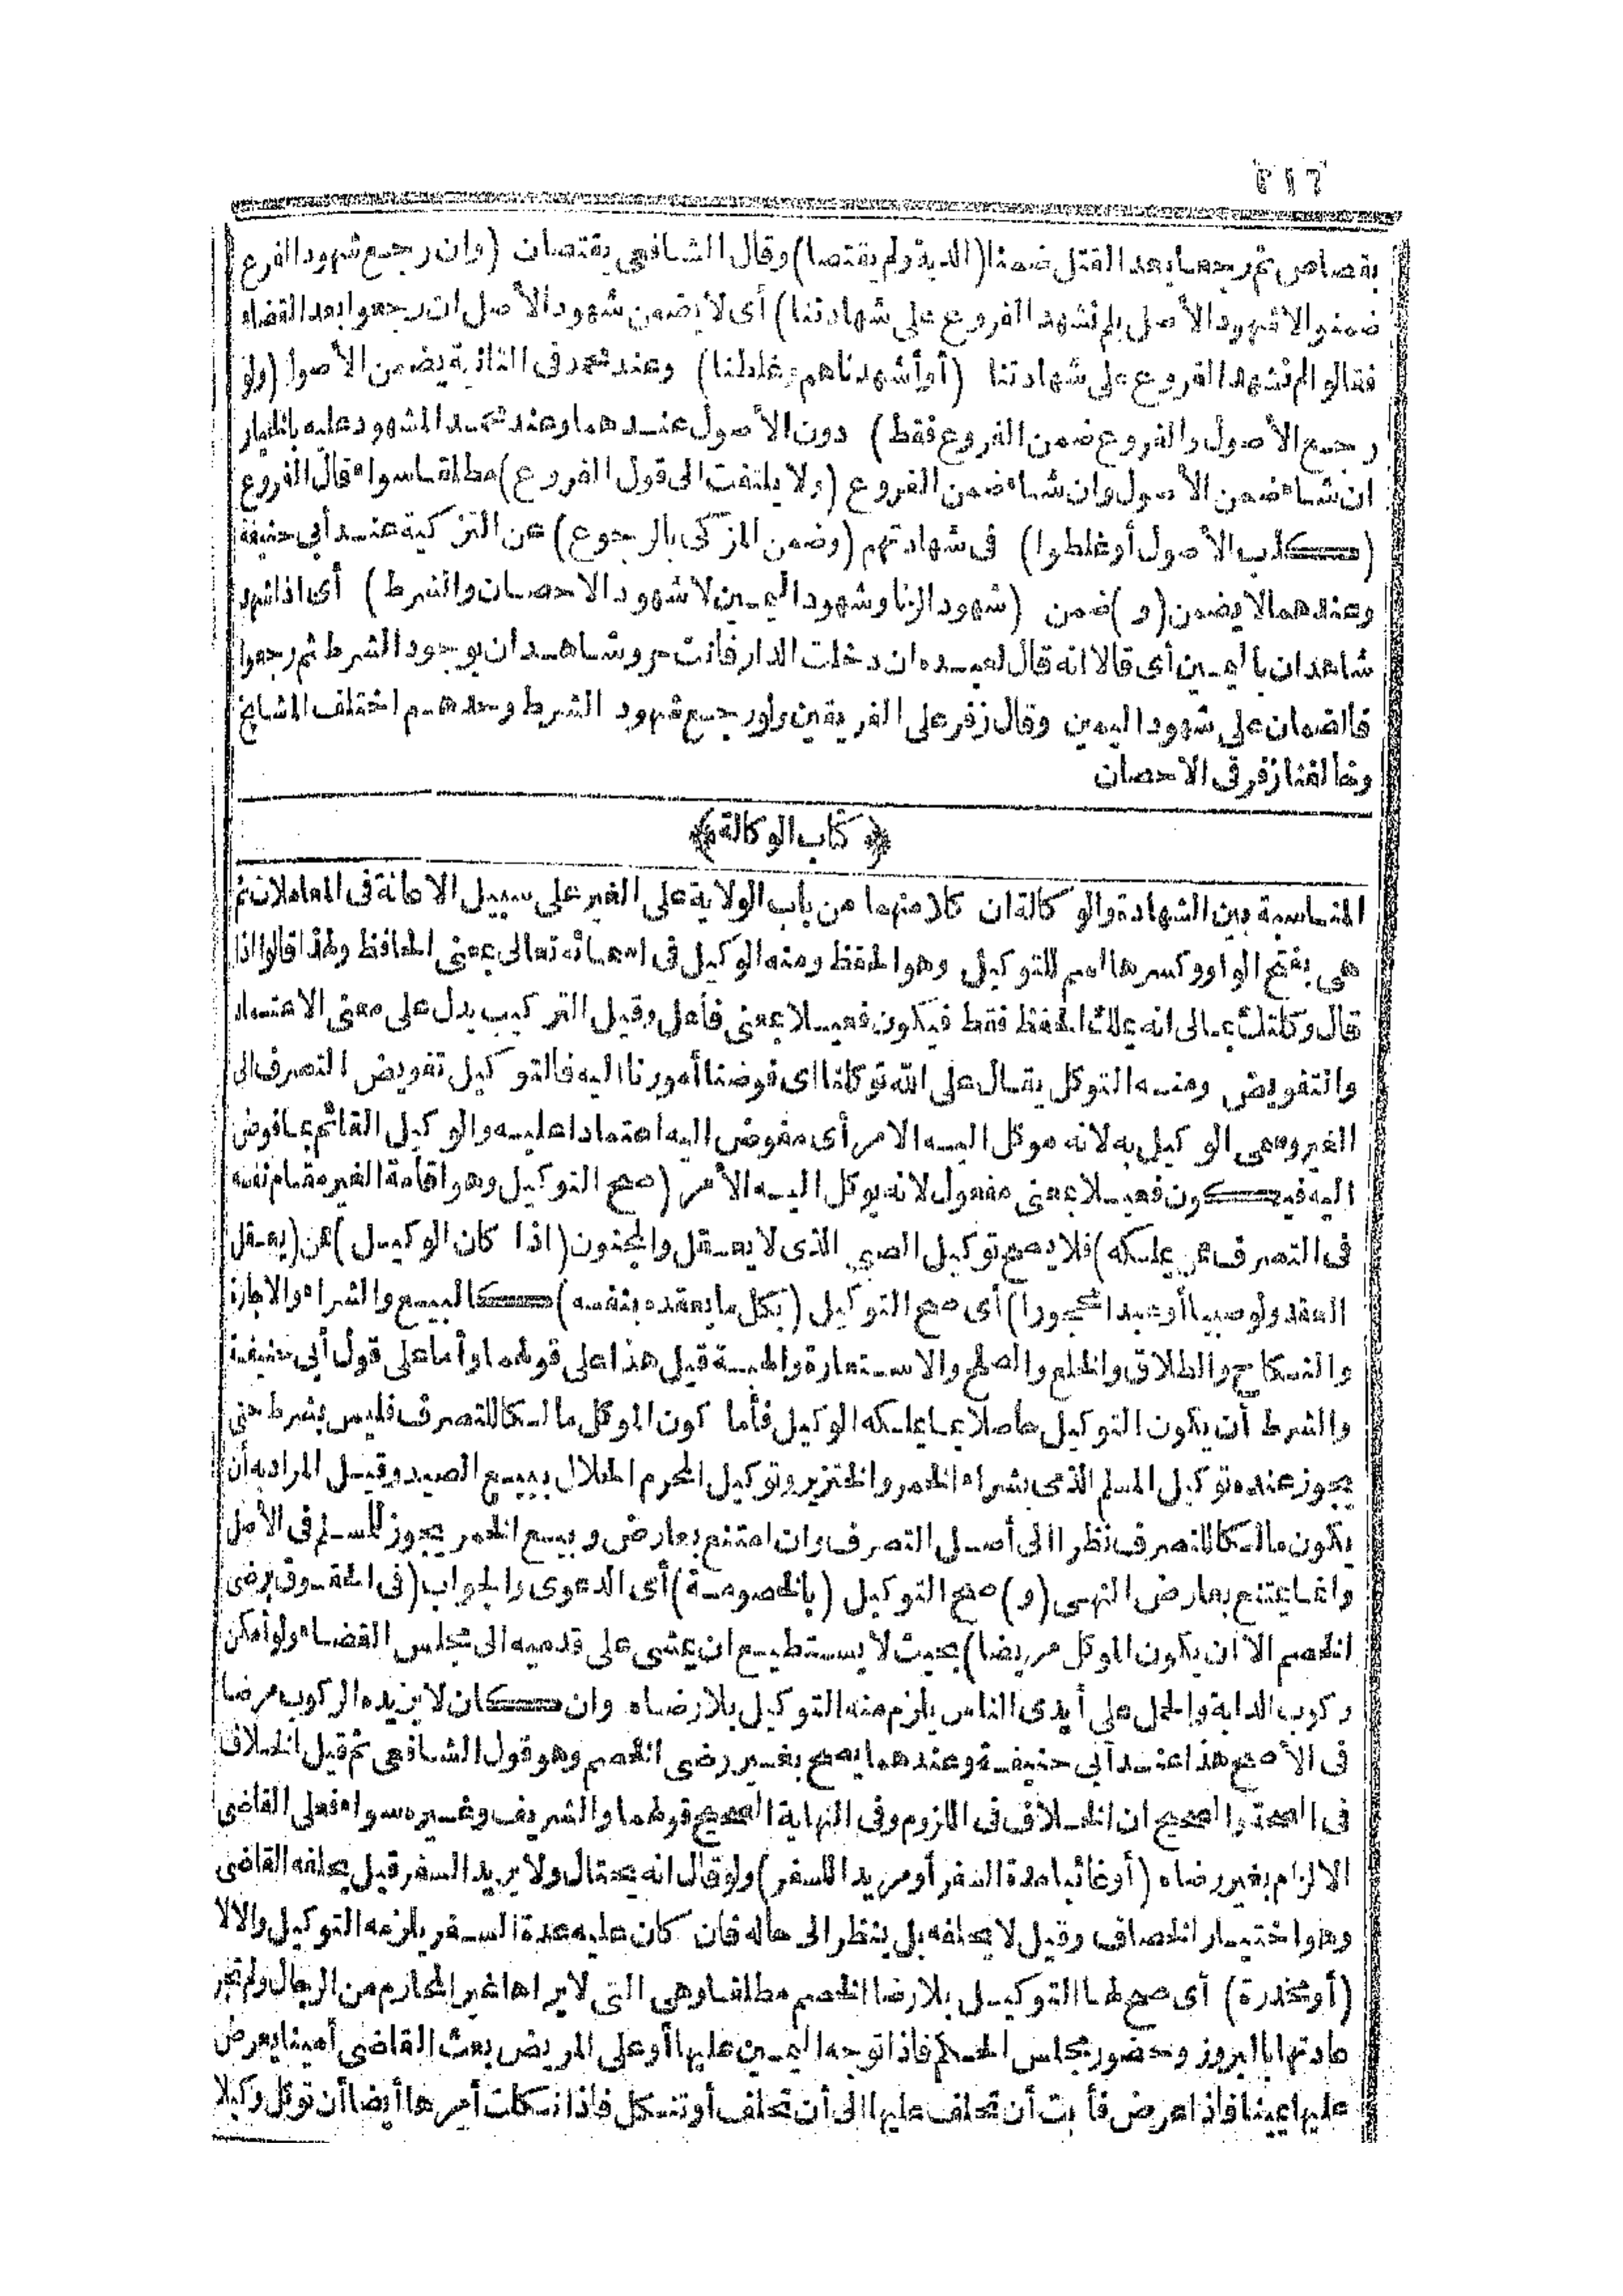 بقصاص ثم رجعا بعد القتل ضمنا (الدية ولم يقتصا) وقال الشافعي يقتصان (وان رجع شهود الفرع
ضمنوا لا شهود الأصل بلم نشهد الفروع على شهادتنا) أى لا يضمن شهود الأصل ان رجعوا بعد القضاء
فقالوا لم نشهد الفروع على شهادتنا (أو أشهدناهم وغلطنا) وعند محمد فى الثانية يضمن الأصول (ولو
رجع الأصول والفروع ضمن الفروع فقط) دون الأصول عندهما وعند محمد المشهود عليه بالخيار
ان شاء ضمن الأصول وان شاء ضمن الفروع (ولا يلتفت الى قول الفروع) مطلقا سواء قال الفروع
(كذب الأصول أو غلطوا) فى شهادتهم (وضمن المزكى بالرجوع) عن التزكية عند أبى حنيفة
وعندهما لا يضمن (و) ضمن (شهود الزنا وشهود اليمين لا شهود الاحصان والشرط) أى اذا شهد
شاهدان باليمين أى قالا انه قال لعبده ان دخلت الدار فانت حر وشاهدان بوجود الشرط ثم رجعوا
فالضمان على شهود اليمين وقال زفر على الفريقين ولو رجع شهود الشرط وحدهم اختلف المشايخ
وخالفنا زفر فى الاحصان
﴿كتاب الوكالة﴾
المناسبة بين الشهادة والوكالة ان كلا منهما من باب الولاية على الغير على سبيل الامانة فى المعاملات ثم
هى بفتح الواو وكسرها اسم للتوكيل وهو الحفظ ومنه الوكيل فى اسمائه تعالى بمعنى الحافظ ولهذا قالوا اذا
قال وكلتك بمالى انه يملك الحفظ فقط فيكون فعيلا بمعنى فاعل وقيل التركيب يدل على معنى الاعتماد
والتفويض ومنه التوكل يقال على الله توكلنا اى فوضنا أمورنا اليه فالتوكيل تفويض التصرف الى
الغير وسمى الوكيل به لانه موكل اليه الامر أى مفوض اليه اعتمادا عليه والوكيل القائم بما فوض
اليه فيكون فعيلا بمعنى مفعول لانه يوكل اليه الأمر (صح التوكيل وهو اقامة الغير مقام نفسه
فى التصرف ممن يملكه) فلا يصح توكيل الصبى الذى لا يعقل والمجنون (اذا كان الوكيل) ممن (يعقل
العقد ولو صبيا أو عبدا محجورا) أى صح التوكيل (بكل ما يعقده بنفسه) كالبيع والشراء والاجارة
والنكاح والطلاق والخلع والصلح والاستعارة والهبة قيل هذا على قولهما وأما على قول أبى حنيفة
والشرط أن يكون التوكيل حاصلا بما يملكه الوكيل فأما كون الموكل مالكا للتصرف فليس بشرط حتى
يجوز عنده توكيل المسلم الذمى بشراء الخمر والخنزير وتوكيل المحرم الحلال ببيع الصيد وقيل المراد به أن
يكون مالكا للتصرف نظرا الى أصل التصرف وان امتنع بعارض وبيع الخمر يجوز للمسلم فى الأصل
وانما يمتنع بعارض النهى (و) صح التوكيل (بالخصومة) أى الدعوى والجواب (فى الحقوق برضى
الخصم الا ان يكون الموكل مريضا) بحيث لا يستطيع ان يمشى على قدميه الى مجلس القضاء ولو أمكن
ركوب الدابة والحمل على أيدى الناس يلزم منه التوكيل بلا رضاه وان كان لا يزيده الركوب مرضا
فى الأصح هذا عند أبى حنيفة وعندهما يصح بغير رضى الخصم وهو قول الشافعى ثم قيل الخلاف
فى الصحة والصحيح ان الخلاف فى اللزوم وفى النهاية الصحيح قولهما والشريف وغيره سواء فعلى القاضى
الالزام بغير رضاه (أو غائبا مدة السفر أو مريدا للسفر) ولو قال انه يحتال ولا يريد السفر قيل يحلفه القاضى
وهو اختيار الخصاف وقيل لا يحلفه بل ينظر الى حاله فان كان عليه عدة السفر يلزمه التوكيل والا لا
(أو مخدرة) أى صح لها التوكيل بلا رضا الخصم مطلقا وهى التى لا يراها غير المحارم من الرجال ولم تجر
عادتها بالبروز وحضور مجلس الحكم فاذا توجه اليمين عليها أو على المريض بعث القاضى أمينا يعرض
عليها يمينا فاذا عرض فأبت أن تحلف عليها الى أن تحلف أو تنكل فاذا نكلت أمرها أيضا أن توكل وكيلا